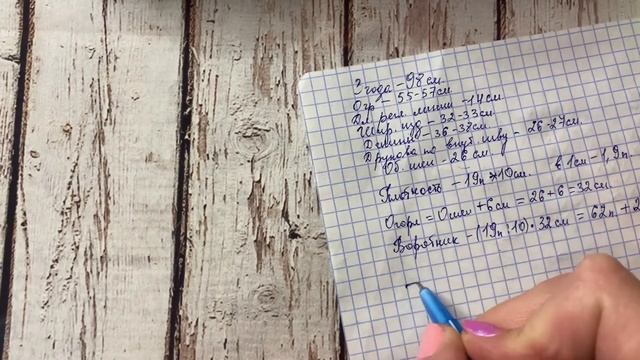 3 года - 98 см
Ог - 55-57 см
Дл. регл. линии - 14 см
Шир. изд - 32-33 см
Длина - 36-38 см
Д рукава по внут. шву - 26-27 см
Об. шеи - 26 см
Плотность - 19п * 10 см. в 1 см - 1,9п
Огорл = Ошеи + 6 см = 26 + 6 = 32 см
Воротник - (19п : 10) · 32 см = 62п. + 2